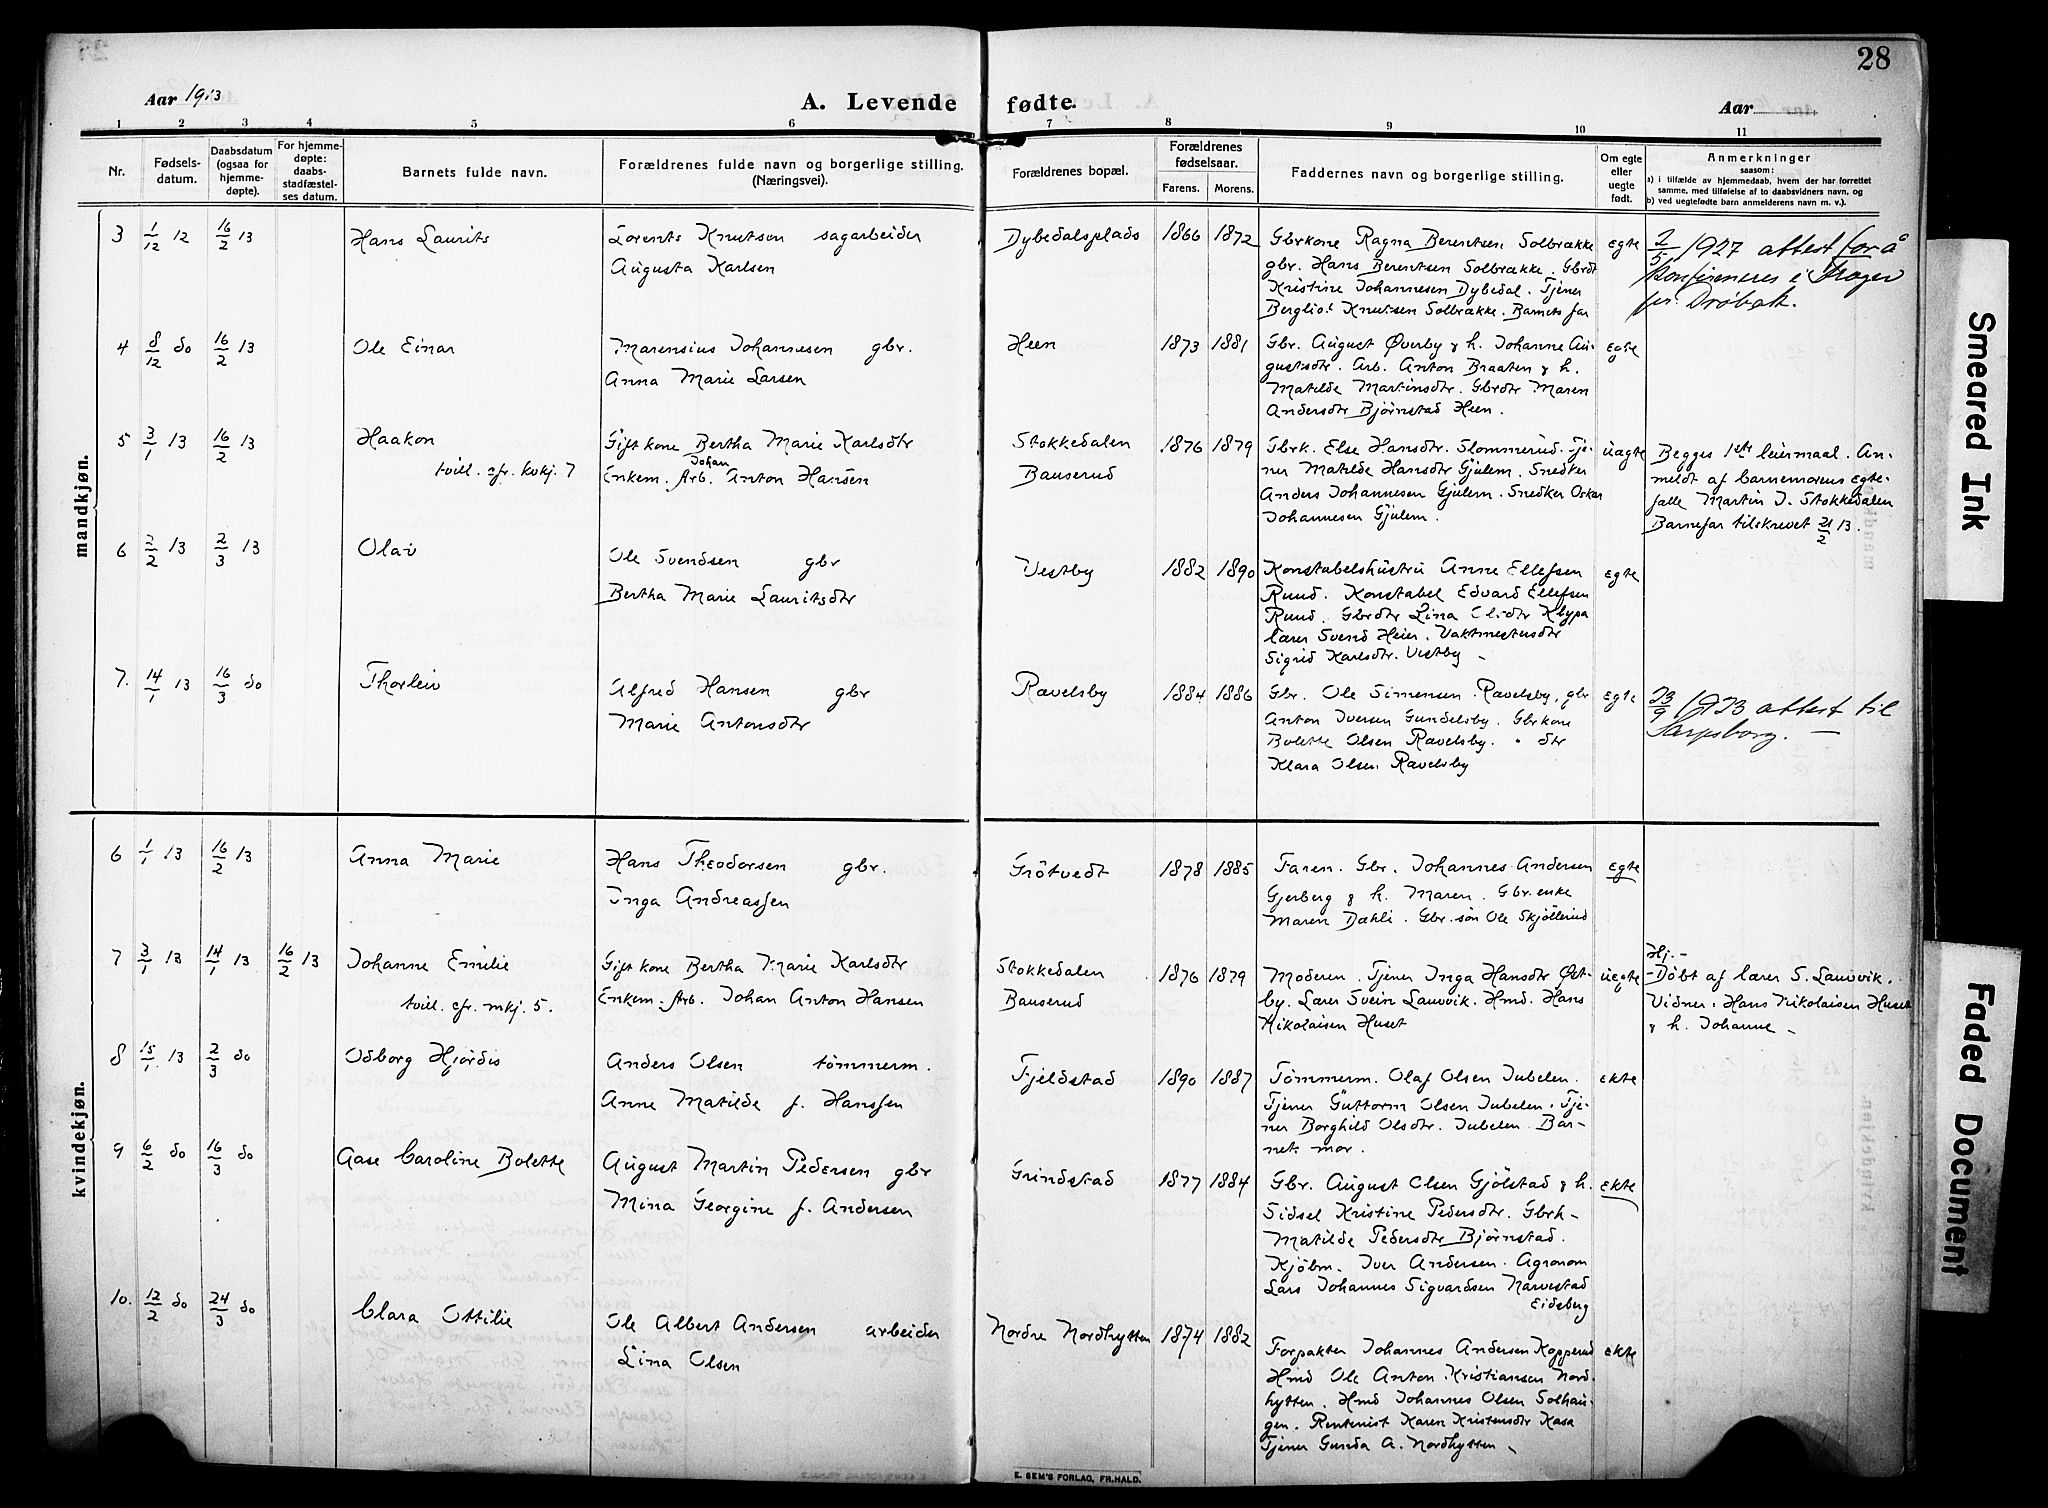 28
Aar 1913
A. Levende fødte.
Aar
1 2 3 4 5 6 7 8 9 10 11
Nr.
Fødsels-
datum.
Daabsdatum
(ogsaa for
hjemme-
døpte).
For hjemme-
døpte:
daabs-
stadfæstel-
ses datum.
Barnets fulde navn.
Forældrenes fulde navn og borgerlige stilling.
(Næringsvei).
Forældrenes bopæl.
Forældrenes
fødselsaar.
Farens. Morens.
Faddernes navn og borgerlige stilling.
Om egte
eller
uegte
født.
Anmerkninger
saasom:
a) i tilfælde av hjemmedaab, hvem der har forrettet
samme, med tilføielse af to daabsvidners navn, og
b) ved uegtefødte barn anmelderens navn m. v.).
mandkjøn.
3 1/12 12 16/2 13 Hans Laurits
Lorents Knutsen sagarbeider
Augusta Karlsen
Dybedalsplads 1866 1872
Gbrkone Ragna Berentsen Solbrække
gbr. Hans Berentsen Solbrække. Gbrdt
Kristine Johannesen Dybedal. Tjener
Bergliot Knutsen Solbrække. Barnets far
egte
2/5 1927 attest for å
konfirmeres i
pr. Drøbak.
4 8/12 do 16/2 13 Ole Einar
Marensius Johannesen gbr.
Anna Marie Larsen
Heen 1873 1881
Gbr. August Øverby & h. Johanne Au-
gustsdtr. Arb. Anton Braaten & h.
Matilde Martinsdtr. Gbrdtr Maren
Andersdtr Bjørnstad Heen.
egte
5 3/1 13 16/2 13 Haakon
tvill. cfr. kvkj. 7
Gift kone Bertha Marie Karlsdtr
Enkem. Arb. Johan Anton Hansen
Stokkedalen
Bauserud
1876 1879
Gbrk. Else Hansdtr. Slommerud. Tje-
ner Matilde Hansdtr Gjulem. Snedker
Anders Johannesen Gjulem. Snedker Oskar
Johannesen Gjulem.
uægte
Begges 1ste leiermaal. An-
meldt af barnemorens egte-
fælle Martin J. Stokkedalen
Barnefar tilskrevet 21/2 13.
6 2/2 13 2/3 13 Olav
Ole Svendsen gbr
Bertha Marie Lauritsdtr
Vestby 1882 1890
Konstabelshustru Anne Ellefsen
Ruud. Konstabel Edvard Ellefsen
Ruud. Gbrdtr Lina Olsdtr Klypa
lærer Svend Heier. Vaktmestersdtr
Sigrid Karlsdtr. Vestby -
egte
7. 14/1 13 16/3 do Thorleiv
Alfred Hansen gbr
Marie Antonsdtr
Ravelsby 1884 1886
Gbr. Ole Simensen. Ravelsby. gbr
Anton Iversen Gundelsby. Gbrkone
Bolette Olsen Ravelsby. " dtr
Klara Olsen Ravelsby
egte
23/9 1923 attest til
Sarpsborg. —
kvindekjøn.
6 1/1 13 16/2 13 Anna Marie
Hans Theodorsen gbr.
Inga Andreassen
Grötvedt 1878 1885
Faren. Gbr. Johannes Andersen
Gjerberg & h. Maren. Gbr. enke
Maren Dæhli. Gbr. søn Ole Skjöllerud
egte
7 3/1 13 14/1 13 16/2 13 Johanne Emilie
tvill. cfr. mkj. 5.
Gift kone Bertha Marie Karlsdtr
Enkem. Arb. Johan Anton Hansen
Stokkedalen
Bauserud
1876 1879
Moderen. Tjener Inga Hansdtr Øst-
by. Lærer Svein Lauvvik. Hmd. Hans
Nikolaisen Huset
uegte
Hj.-
- Döbt af lærer S. Lauvvik.
Vidner. Hans Nikolaisen Huset
& h. Johanne -
8 15/1 13 2/3 do Odborg Hjördis
Anders Olsen tömmerm.
Anne Matilde f. Hanssen
Fjeldstad 1890 1887
Tömmerm. Olaf Olsen Jubelen.
Tjener Guttorm Olsen Jubelen. Tje-
ner Borghild Olsdtr. Jubelen. Bar-
nets mor.
ekte
9 6/2 do 16/3 do Aase Caroline Bolette
August Martin Pedersen gbr
Mina Georgine f. Andersen
Grindstad 1877 1884
Gbr. August Olsen Gjölstad & h.
Sidsel Kristine Pedersdtr. Gbrk-
Matilde Pedersdtr Bjørnstad.
Kjöbm. Iver Andersen. Agronom
Lars Johannes Sigvardsen Narvestad
Eidsberg
ekte
10. 12/2 do 24/3 do Clara Ottilie
Ole Albert Andersen arbeider
Lina Olsen
Nordre Nordhytten 1874 1882
Forpakter Johannes Andersen Kopperud
Hmd Ole Anton Kristiansen Nord-
hytten. Hmd Johannes Olsen Solhau-
gen. Rentenist Karen Kristensdtr Kasa
Tjener Gunda A. Nordhytten -
ekte
E. SEM'S FORLAG, FR.HALD.
Smeared Ink
Faded Document